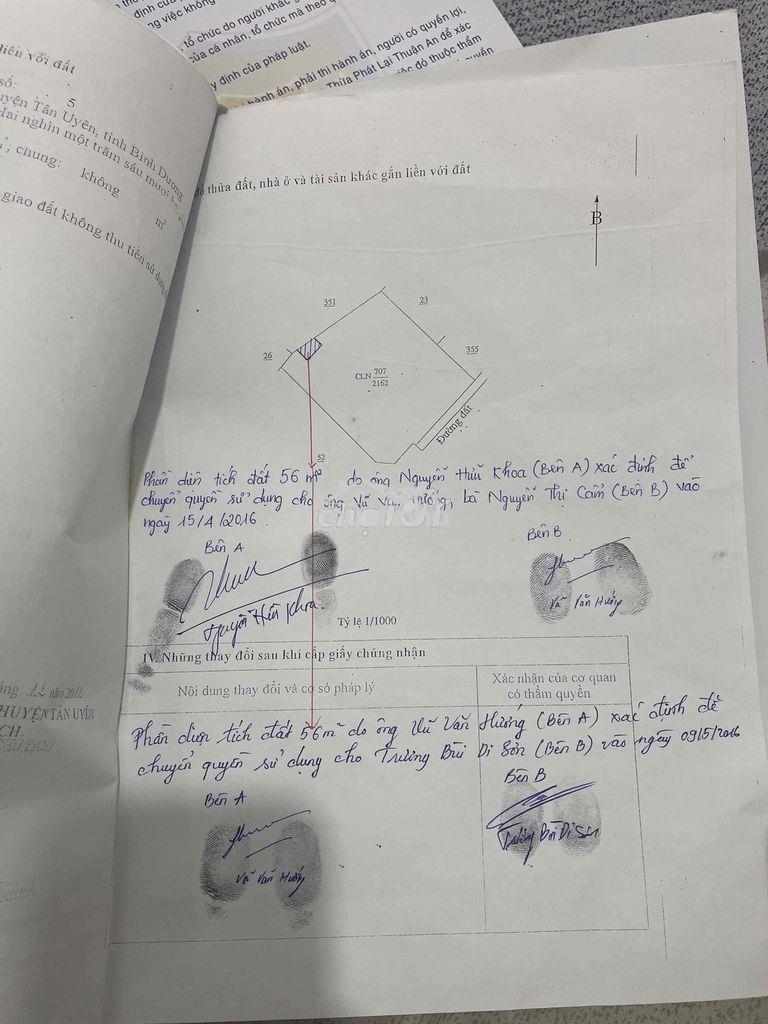 định của
tổ chức do người khác
ng việc không
của cá nhân, tổ chức mà theo
y định của pháp luật.
hành án, phải thi hành án, người có quyền lợi,
Thừa Phát Lại Thuận An để xác
đó thuộc thẩm
quyền
liền với đất
số: 5
uyện Tân Uyên, tỉnh Bình Dương
Hai nghìn một trăm sáu mươi
chung: không m²
giao đất không thu tiền sử dụng
đồ thửa đất, nhà ở và tài sản khác gắn liền với đất
B
351
23
26
355
CLN 707
2162
Đường đất
52
Phần diện tích đất 56 m² do ông Nguyễn Hữu Khoa (Bên A) xác định để
chuyển quyền sử dụng cho ông Vũ Văn Hướng, bà Nguyễn Thị Cẩm (Bên B) vào
ngày 15/4/2016.
chợTỐT
Bên A
Bên B
Nguyễn Hữu Khoa.
Vũ Văn Hướng
Tỷ lệ 1/1000
IV. Những thay đổi sau khi cấp giấy chứng nhận
Nội dung thay đổi và cơ sở pháp lý
Xác nhận của cơ quan
có thẩm quyền
12 năm 2012
HUYỆN TÂN UYÊN
CH.
Phần diện tích đất 56m² do ông Vũ Văn Hướng (Bên A) xác định để
chuyển quyền sử dụng cho Trương Bùi Di Sơn (Bên B) vào ngày 09/5/2016
Bên A
Bên B
Vũ Văn Hướng
Trương Bùi Di Sơn